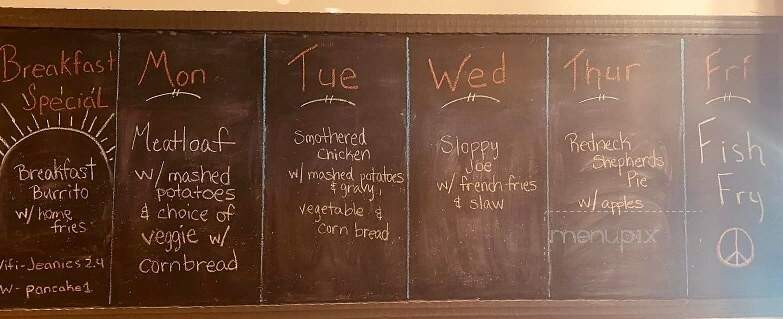 Breakfast
Special
Breakfast
Burrito
w/ home
fries
Wifi-Jeanies 2.4
W- pancake1
Mon
Meatloaf
w/ mashed
potatoes
& choice of
veggie w/
cornbread
Tue
Smothered
Chicken
w/ mashed potatoes
& gravy,
vegetable &
corn bread
Wed
Sloppy
Joe
w/ french fries
& slaw
Thur
Redneck
Shepherds
Pie
w/ apples
menupix
Fri
Fish
Fry